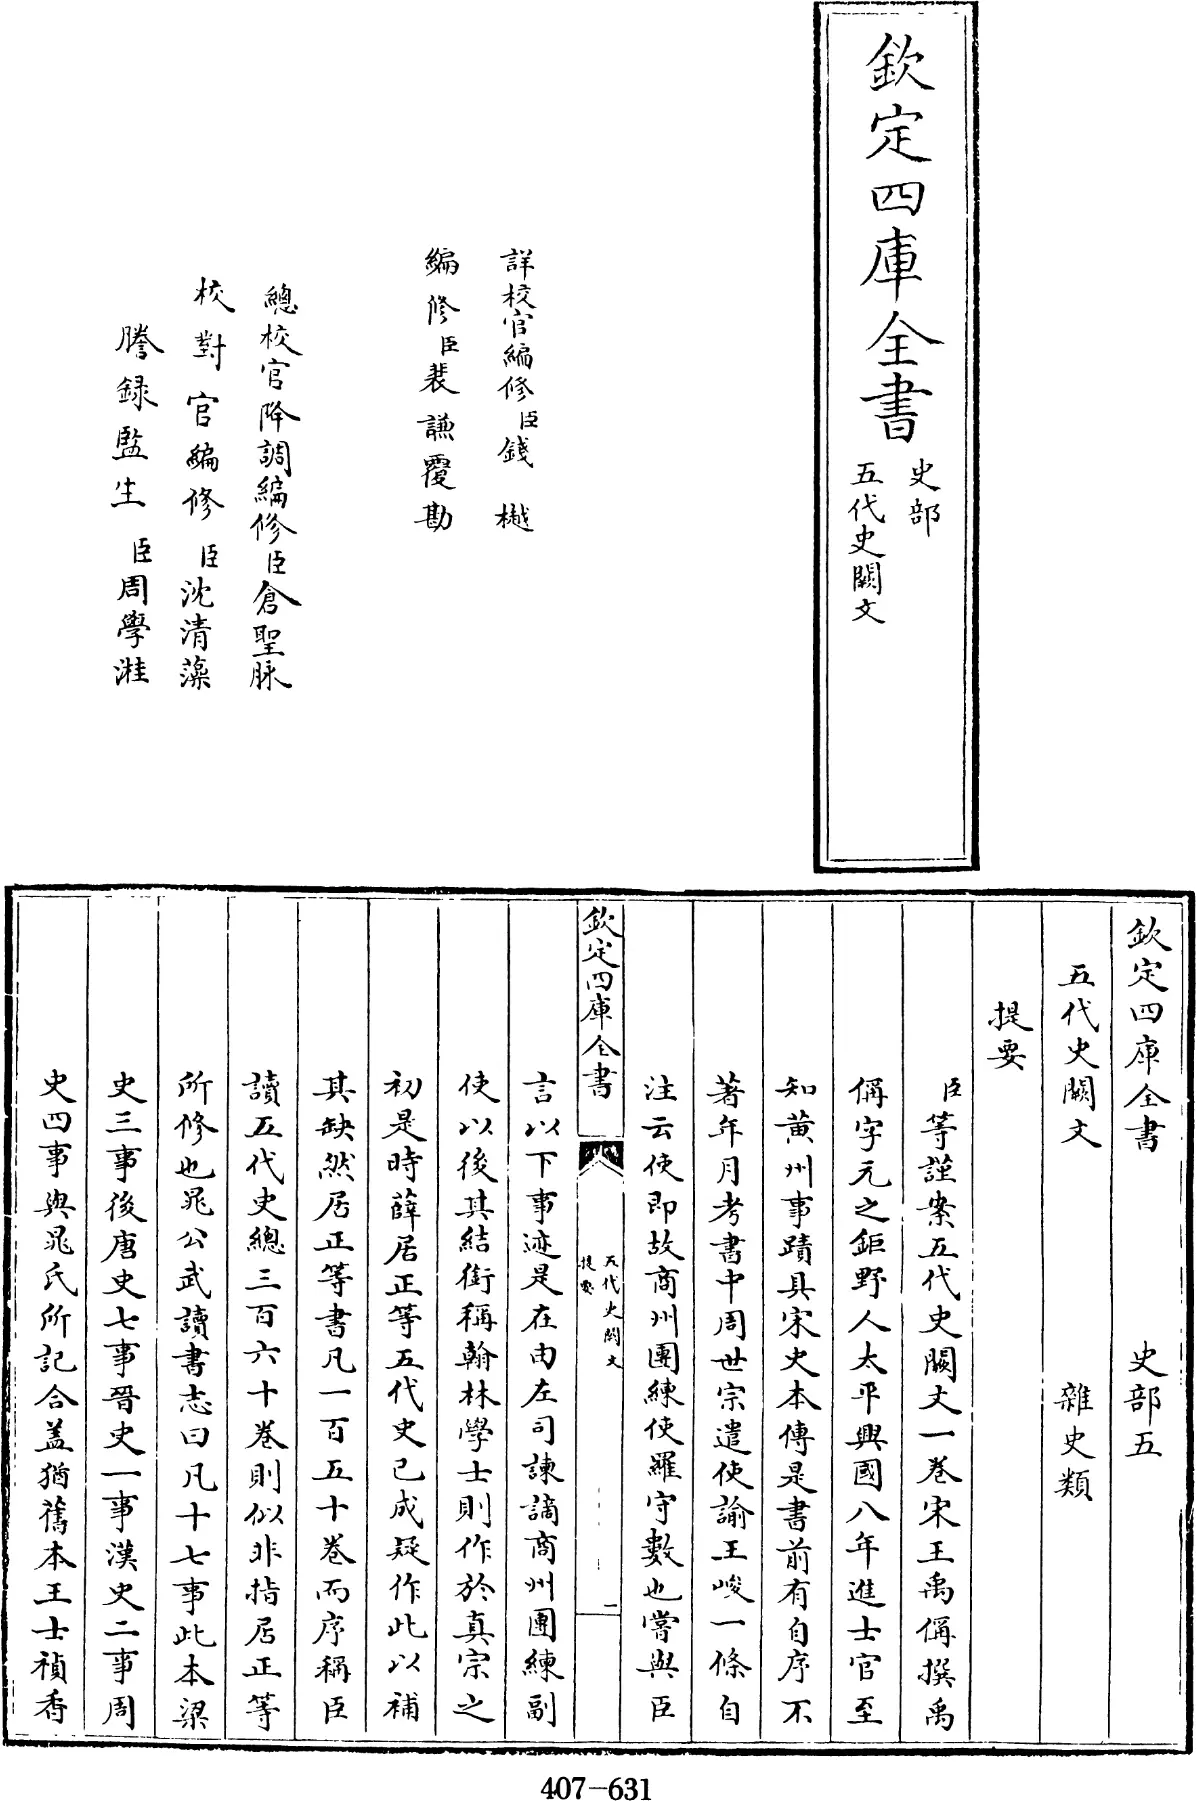 欽定四庫全書
史部
五代史闕文
詳校官編修臣錢樾
編修臣裴謙覆勘
總校官降調編修臣倉聖脉
校對官編修臣沈清藻
謄録監生臣周學溎
欽定四庫全書 史部五
五代史闕文 雜史類
提要
臣等謹案五代史闕文一卷宋王禹偁撰禹
偁字元之鉅野人太平興國八年進士官至
知黄州事蹟具宋史本傳是書前有自序不
著年月考書中周世宗遣使諭王峻一條自
注云使即故商州團練使羅守數也嘗與臣
欽定四庫全書
五代史闕文
提要
一
言以下事迹是在由左司諫謫商州團練副
使以後其結銜稱翰林學士則作於真宗之
初是時薛居正等五代史已成疑作此以補
其缺然居正等書凡一百五十卷而序稱臣
讀五代史總三百六十卷則似非指居正等
所修也晁公武讀書志曰凡十七事此本梁
史三事後唐史七事晉史一事漢史二事周
史四事與晁氏所記合盖猶舊本王士禎香
407-631